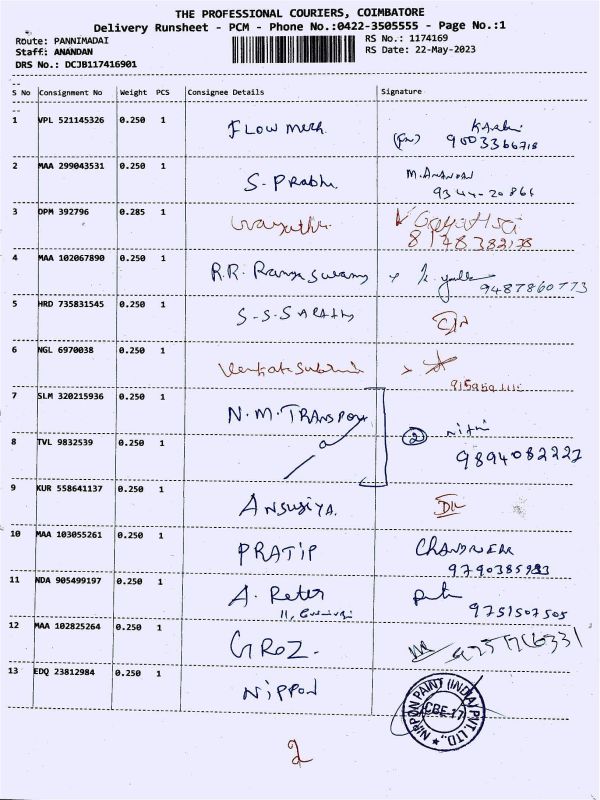 THE PROFESSIONAL COURIERS, COIMBATORE
Delivery Runsheet - PCM - Phone No.:0422-3505555 - Page No.:1
Route: PANNIMADAI RS No.: 1174169
Staff: ANANDAN RS Date: 22-May-2023
DRS No.: DCJB117416901
S No Consignment No Weight PCS Consignee Details Signature
1 VPL 521145326 0.250 1 FLOW
9003366718
2 MAA 299043531 0.250 1 S. Prabhu M. Anandan
9344-20866
3 DPM 392796 0.285 1 Gayathri
8148382138
4 MAA 102067890 0.250 1 R.R. Ranga Swamy
9487860773
5 HRD 735831545 0.250 1 S-S-SARATH
6 NGL 6970038 0.250 1
7 SLM 320215936 0.250 1 N.M. TRANSPORT 2 nithi
8 TVL 9832539 0.250 1 9894082222
9 KUR 558641137 0.250 1 ANSUSIYA.
10 MAA 103055261 0.250 1 PRATIP
9790385983
11 NDA 905499197 0.250 1 A. Peter
11, 9751507505
12 MAA 102825264 0.250 1 GROZ.
13 EDQ 23812984 0.250 1 NIPPON
NIPPON PAINT (INDIA) PVT. LTD.,
CBE-17
2